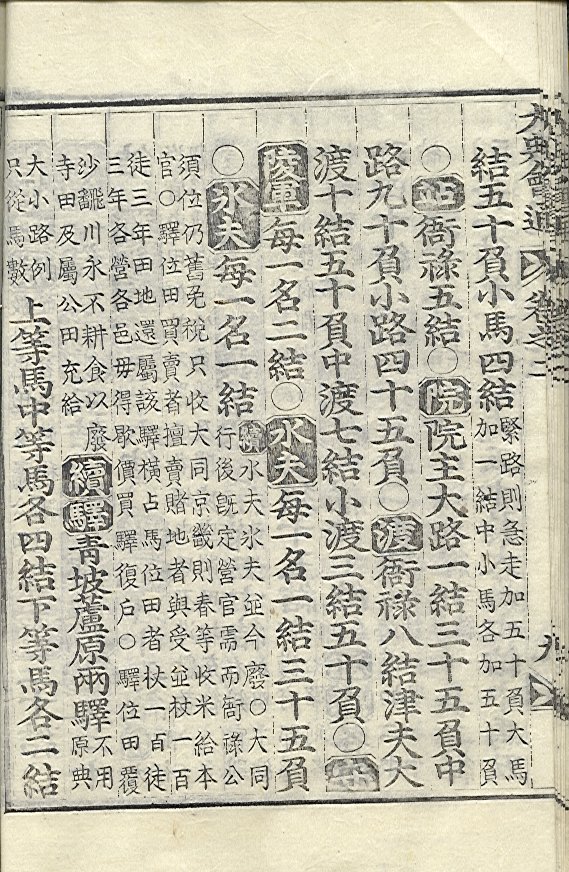 大典會通
卷之二
結五十負小馬四結緊路則急走加五十負大馬
加一結中小馬各加五十負
○站衙祿五結○院院主大路一結三十五負中
路九十負小路四十五負○渡衙祿八結津夫大
渡十結五十負中渡七結小渡三結五十負○守
陵軍每一名二結○水夫每一名一結三十五負
○氷夫每一名一結續水夫氷夫竝今廢○大同
行後旣定營官需而衙祿公
須位仍舊免稅只收大同京畿則春等收米給本
官○驛位田買賣者擅賣賭地者與受竝杖一百
徒三年田地還屬該驛橫占馬位田者杖一百徒
三年各營各邑毋得歇價買驛復戶○驛位田覆
沙飜川永不耕食以廢
寺田及屬公田充給
續驛靑坡蘆原兩驛不用
原典
大小路例
只從馬數
上等馬中等馬各四結下等馬各二結